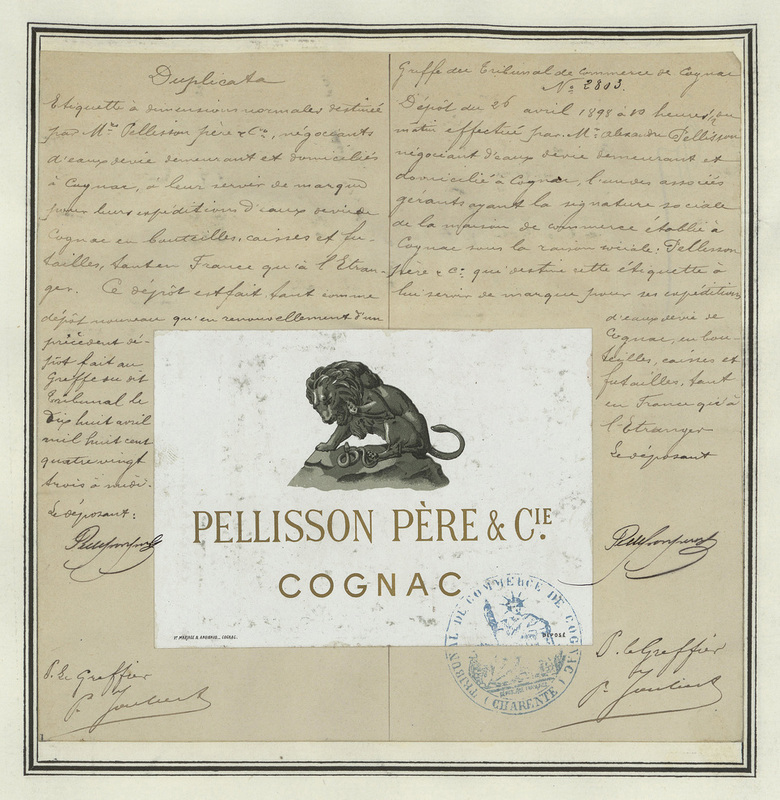 Duplicata
Etiquette à dimensions normales destinée
par Mrs Pellisson père & Cie, négociants
d'eaux de vie demeurant et domiciliés
à Cognac, à leur servir de marque
pour leurs expéditions d'eaux de vie de
Cognac en bouteilles, caisses et fu-
tailles, tant en France qu'à l'Etran-
ger. Ce dépôt est fait tant comme
dépôt nouveau qu'en renouvellement d'un
précédent dé-
pôt fait au
Greffe du dit
Tribunal le
Dix huit avril
mil huit cent
quatre vingt
trois à midi.
Le déposant:
P. Le Greffier
Greffe du Tribunal de Commerce de Cognac
No 2803.
Dépôt du 26 avril 1898 à 10 heures du
matin effectué par Mr Alexandre Pellisson
négociant d'eaux de vie demeurant et
domicilié à Cognac, l'un des associés
gérants ayant la signature sociale
de la maison de commerce établie à
Cognac sous la raison sociale: Pellisson
père & Co. qui destine cette étiquette à
lui servir de marque pour ses expéditions
d'eaux de vie de
Cognac, en bou-
teilles, caisses et
futailles, tant
en France qu'à
l'Etranger
Le déposant
P. le Greffier
PELLISSON PÈRE & CIE.
COGNAC
COGNAC.
DÉPOSÉ
TRIBUNAL DE COMMERCE DE COGNAC
(CHARENTE)